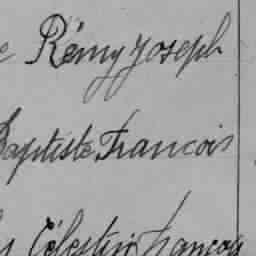 Rémy Joseph
Baptiste Francois
Célestin francois